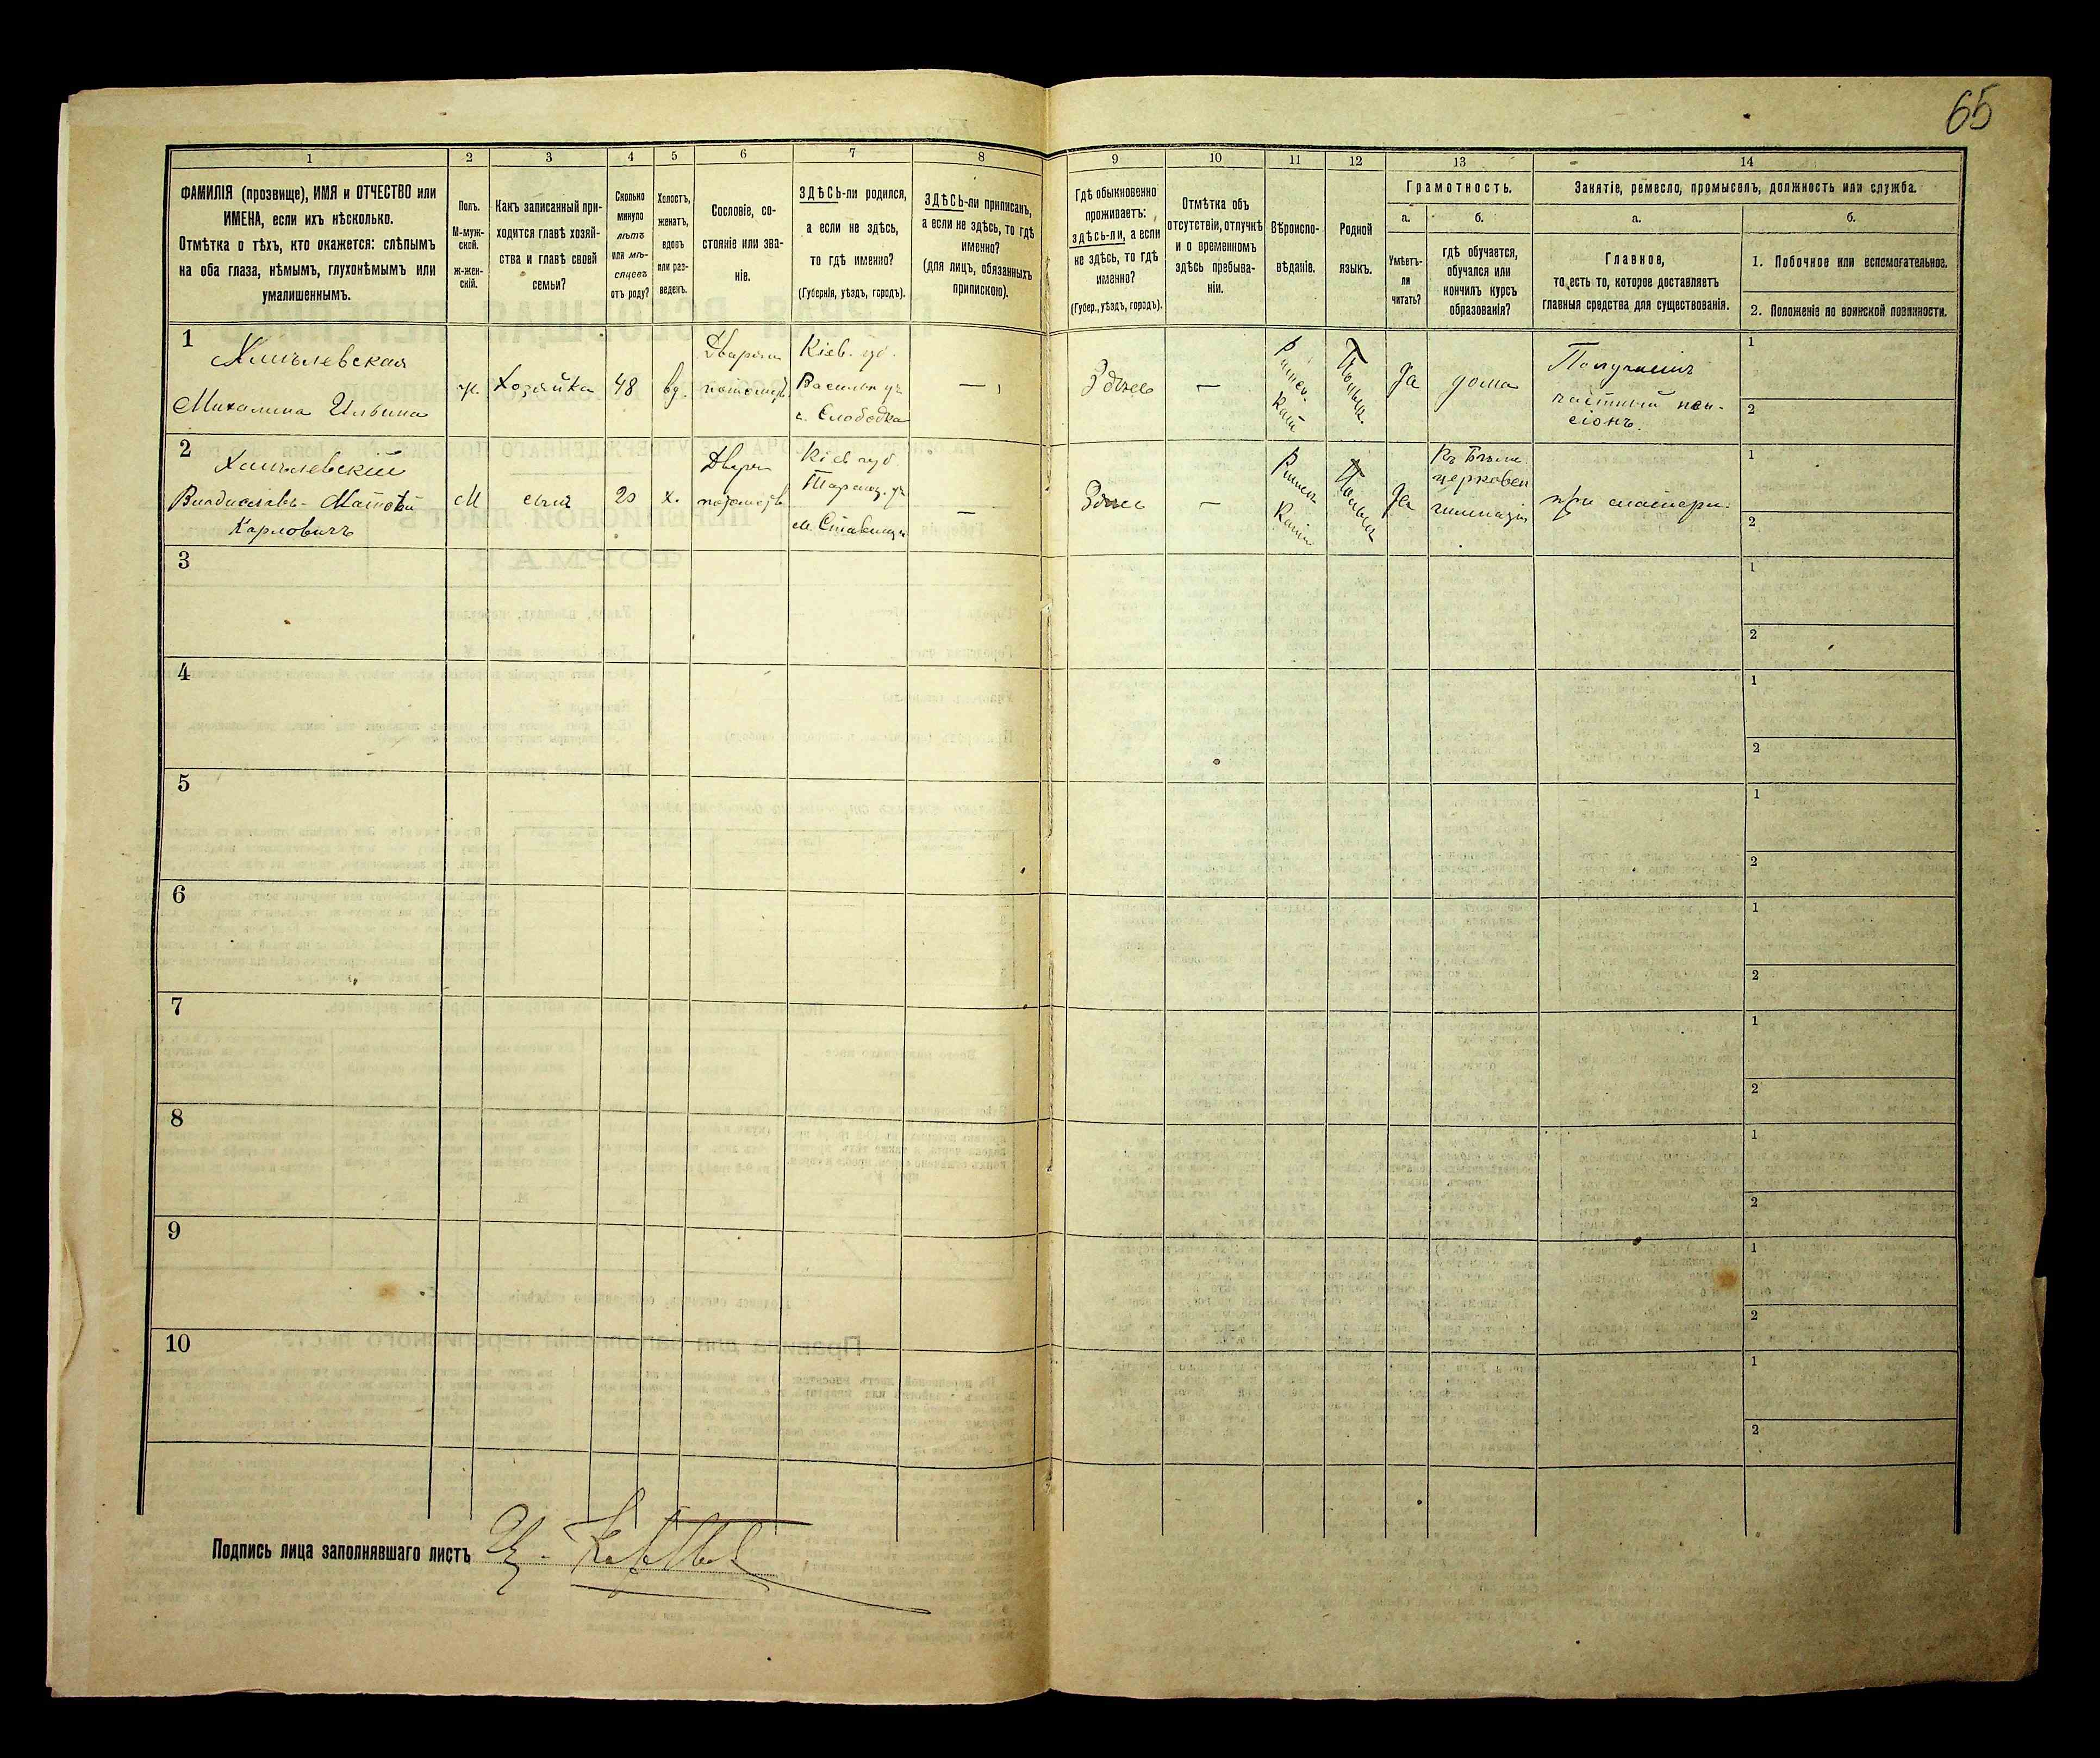 65
1
2
3
4
5
6
7
8
9
10
11
12
13
14
ФАМИЛІЯ (прозвище), ИМЯ и ОТЧЕСТВО или
ИМЕНА, если ихъ нѣсколько.
Отмѣтка о тѣхъ, кто окажется: слѣпымъ
на оба глаза, нѣмымъ, глухонѣмымъ или
умалишеннымъ.
Полъ.
М-муж-
ской.
ж-жен-
скій.
Какъ записанный при-
ходится главѣ хозяй-
ства и главѣ своей
семьи?
Сколько
минуло
лѣтъ
или мѣ-
сяцевъ
отъ роду?
Холостъ,
женатъ,
вдовъ
или раз-
веденъ.
Сословіе, со-
стояніе или зва-
ніе.
ЗДѢСЬ-ли родился,
а если не здѣсь,
то гдѣ именно?
(Губернія, уѣздъ, городъ).
ЗДѢСЬ-ли приписанъ,
а если не здѣсь, то гдѣ
именно?
(для лицъ, обязанныхъ
припискою).
Гдѣ обыкновенно
проживаетъ:
здѣсь-ли, а если
не здѣсь, то гдѣ
именно?
(Губер., уѣздъ, городъ).
Отмѣтка объ
отсутствіи, отлучкѣ
и о временномъ
здѣсь пребыва-
ніи.
Вѣроиспо-
вѣданіе.
Родной
языкъ.
Грамотность.
а.
Умѣетъ-
ли
читать?
б.
гдѣ обучается,
обучался или
кончилъ курсъ
образованія?
Занятіе, ремесло, промыселъ, должность или служба.
а.
Главное,
то есть то, которое доставляетъ
главныя средства для существованія.
б.
1. Побочное или вспомогательное.
2. Положеніе по воинской повинности.
1
Михалина Ильвина
ж.
Хозяйка
48
вд.
Дворян
потомств.
Кіев. губ.
Васильк уѣ
с. Слободка
—
Здѣсь
—
Римск.
Кат
Польск.
Да
дома
частный пен-
сіонъ.
1
2
2
Владиславъ-Матвѣй
Карловичъ
М
сынъ
20
х.
Дворян
потомств
Кіев губ.
Таращ. уѣ
м. Ставищи
—
Здѣсь
—
Римск
Кат
Польск
Да
Въ Бѣло
церковск
гимназіи
при матери.
1
2
3
1
2
4
1
2
5
1
2
6
1
2
7
1
2
8
1
2
9
1
2
10
1
2
Подпись лица заполнявшаго листъ